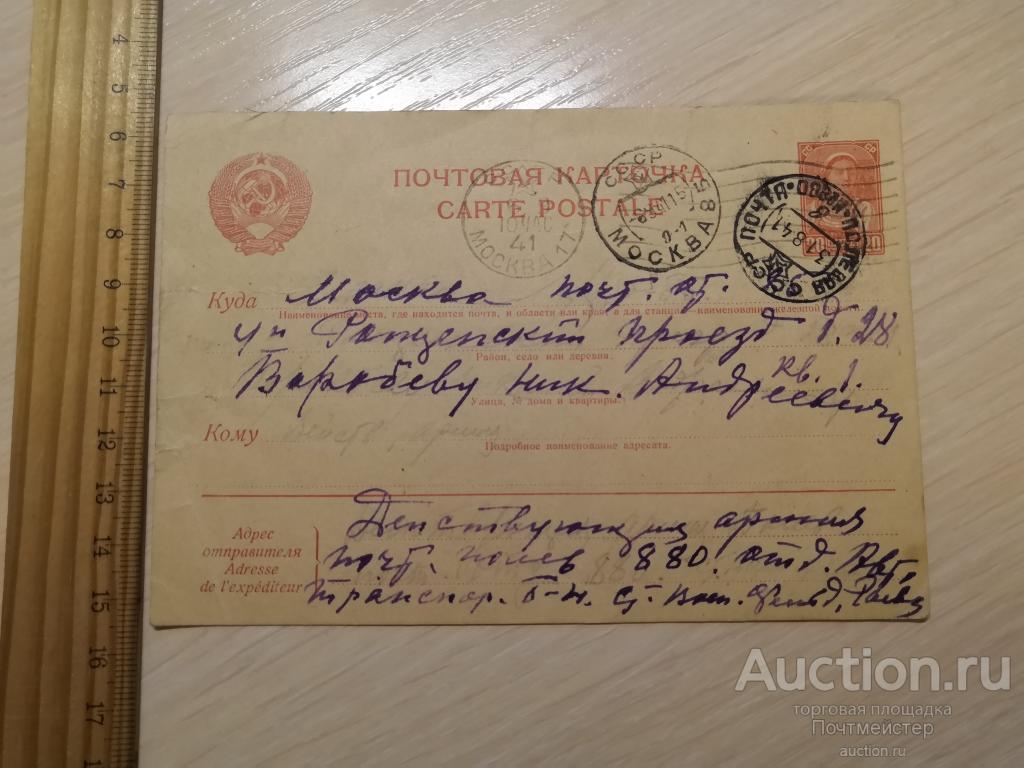 4
5
6
7
8
9
10
11
12
13
14
15
16
17
ПОЧТОВАЯ КАРТОЧКА
CARTE POSTALE
10 ЧАС
41
МОСКВА 17
СССР
МОСКВА 8
СССР ПОЛЕВАЯ ПОЧТА
8 41
Куда Москва почт. от.
Наименование места, где находится почта, и области или края, а для станций наименование железной дороги
проезд д. 28
Район, село или деревня
кв. 1.
Воробёву Ник. Андреевичу
Улица, № дома и квартиры
Кому
Подробное наименование адресата.
Действующая армия
Адрес отправителя
Adresse de l'expéditeur
почт. полев 880. отд. Авт.
Транспор. Б-н. ст.
Auction.ru
торговая площадка
Почтмейстер
auction.ru